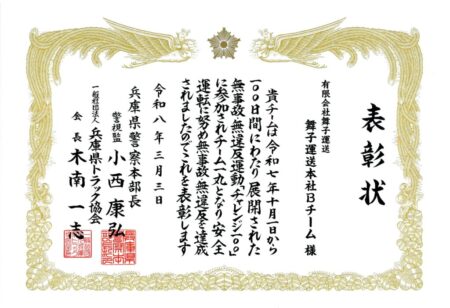 表彰状
有限会社舞子運送
舞子運送本社Bチーム 様
貴チームは令和七年十月一日から
一〇〇日間にわたり展開された
無事故・無違反運動「チャレンジ一〇〇」
に参加されチーム一丸となり安全
運転に努め無事故・無違反を達成
されましたのでこれを表彰します
令和八年三月三日
兵庫県警察本部長
警視監 小西康弘
一般社団法人 兵庫県トラック協会
会長 木南一志